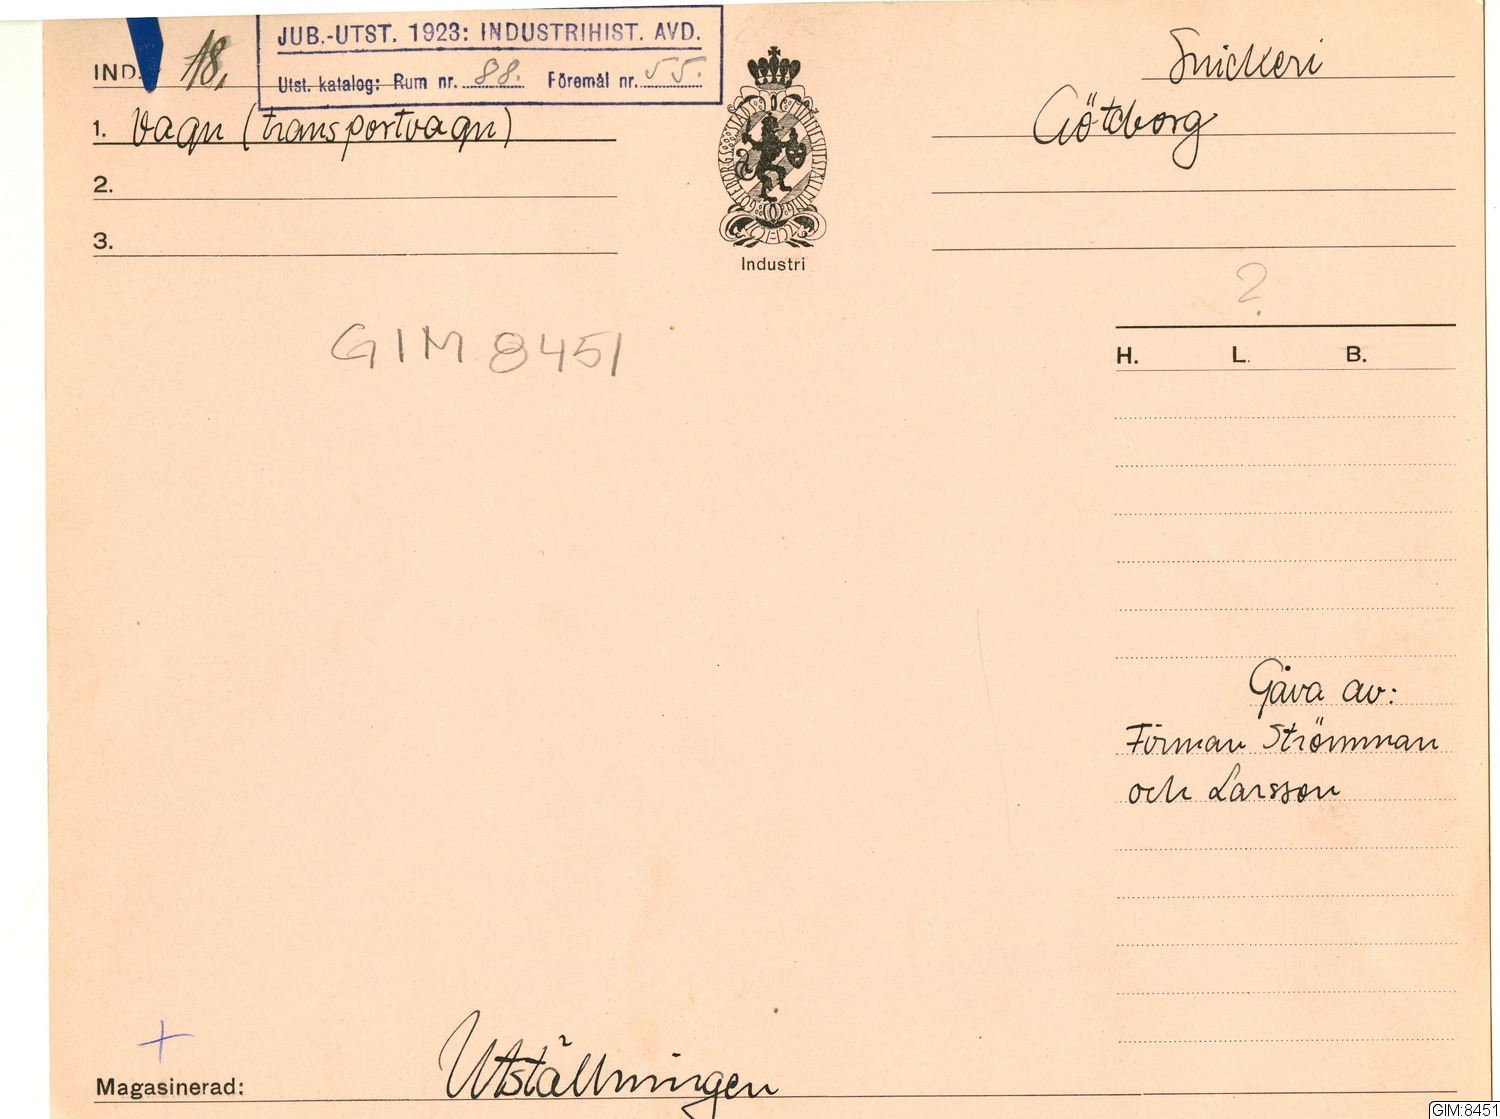 JUB.-UTST. 1923: INDUSTRIHIST. AVD.
Utst. katalog: Rum nr. 88. Föremål nr. 55.
IND. 18.
Snickeri
1. Vagn (transportvagn)
Göteborg
2.
3.
GÖTEBORGS STADS
Industri
?
GIM 8451
H. L. B.
Gåva av:
Firman Strömman
och Larsson
+
Magasinerad: Utställningen
GIM:8451